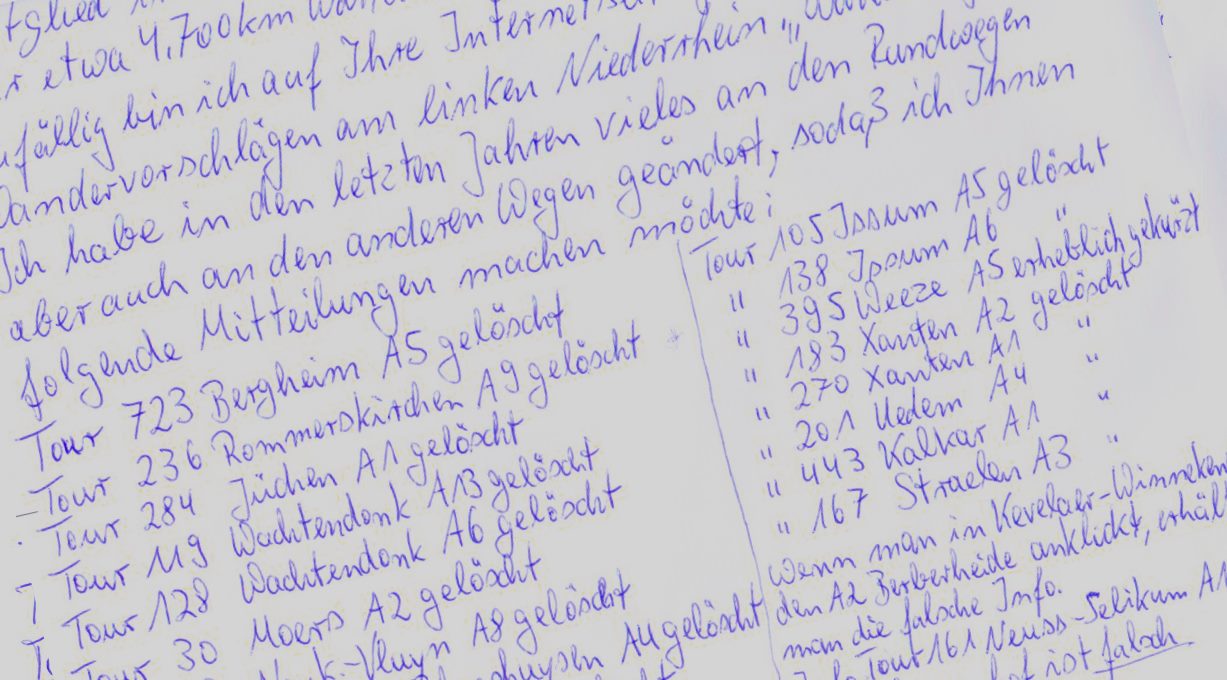 etwa 4.700km
bin ich auf Ihre
Wandervorschlägen am linken Niederrhein "
Ich habe in den letzten Jahren vieles an den Rundwegen
aber auch an den anderen Wegen geändert, sodaß ich Ihnen
folgende Mitteilungen machen möchte:
Tour 723 Bergheim A5 gelöscht
Tour 236 Rommerskirchen A9 gelöscht
Tour 284 Jüchen A1 gelöscht
Tour 119 Wachtendonk A13 gelöscht
Tour 128 Wachtendonk A6 gelöscht
Tour 30 Moers A2 gelöscht
-Vluyn A8 gelöscht
A4 gelöscht
Tour 105 Issum A5 gelöscht
" 138 Issum A6 "
" 395 Weeze A5 erheblich gekürzt
" 183 Xanten A2 gelöscht
" 270 Xanten A1 "
" 201 Uedem A4 "
" 443 Kalkar A1 "
" 167 Straelen A3 "
Wenn man in Kevelaer-Winneken
den A2 Berberheide anklickt, erhäl
man die falsche Info.
Tour 161 Neuss-Selikum A1
ist falsch